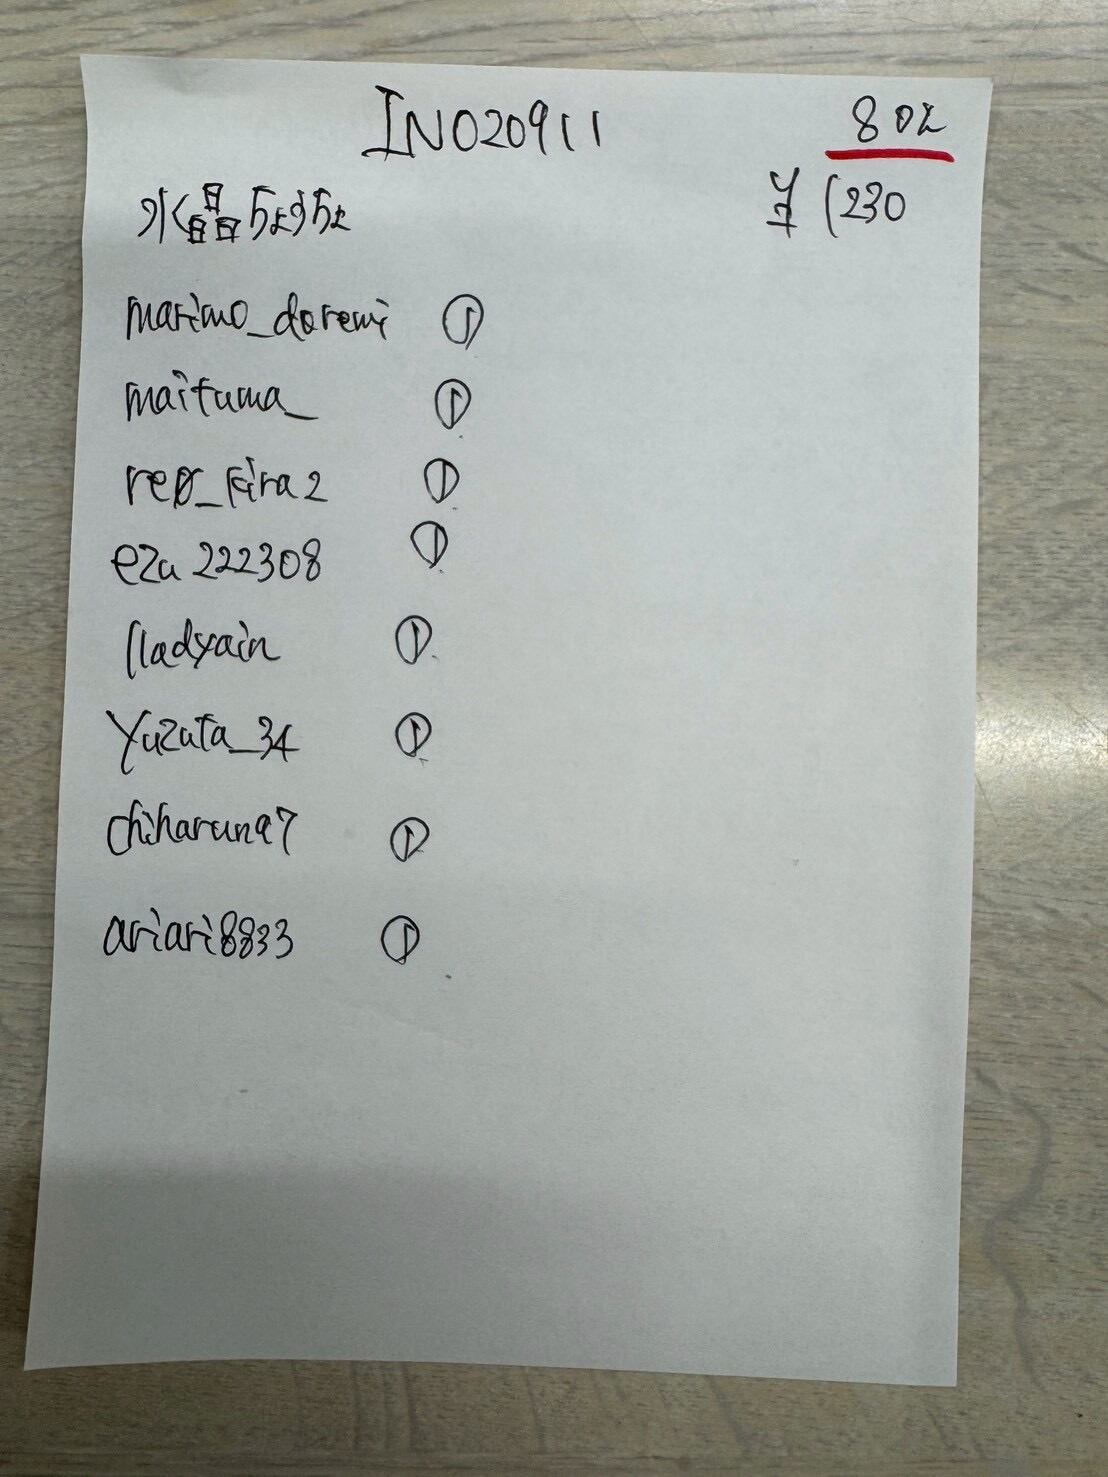 INO20911
802
水晶ちょうちょ
(230
marimo_doremi ①
maituma_ ①
reo_kira2 ①
eza222308 ①
lladyain ①
Yuzuta_34 ①
chiharuna7 ①
ariari8833 ①